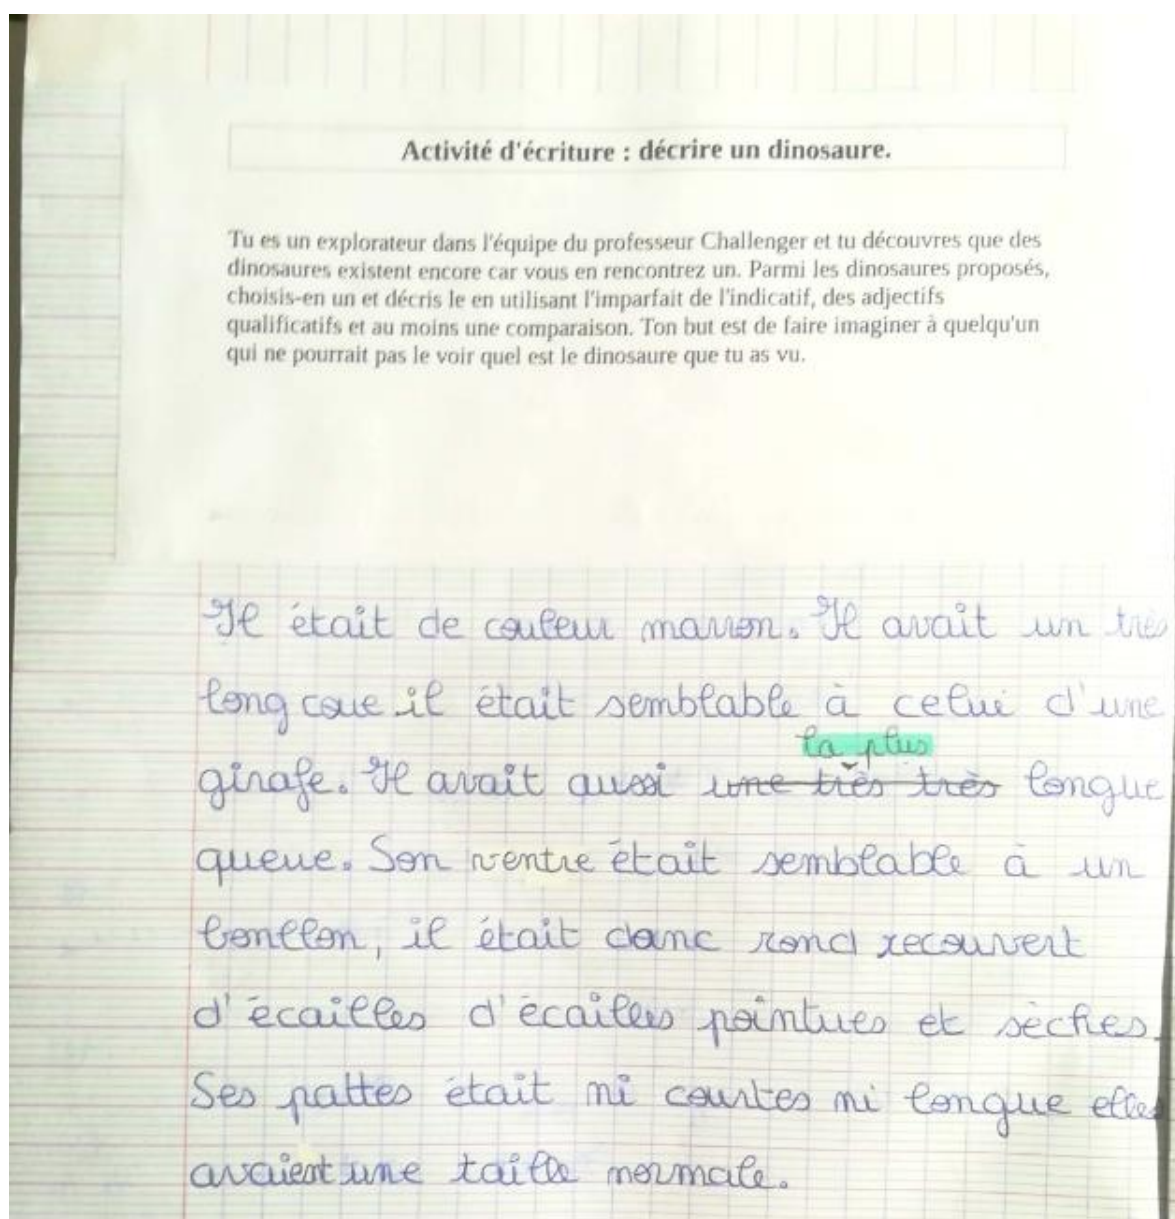 Activité d'écriture : décrire un dinosaure.
Tu es un explorateur dans l'équipe du professeur Challenger et tu découvres que des
dinosaures existent encore car vous en rencontrez un. Parmi les dinosaures proposés,
choisis-en un et décris le en utilisant l'imparfait de l'indicatif, des adjectifs
qualificatifs et au moins une comparaison. Ton but est de faire imaginer à quelqu'un
qui ne pourrait pas le voir quel est le dinosaure que tu as vu.
Il était de couleur marron. Il avait un très
long coue il était semblable à celui d'une
la plus
girafe. Il avait aussi une très très longue
queue. Son ventre était semblable à un
bonllon, il était donc rond recouvert
d'écailles d'écailles pointues et sèches.
Ses pattes était ni courtes ni longue elles
avaient une taille normale.